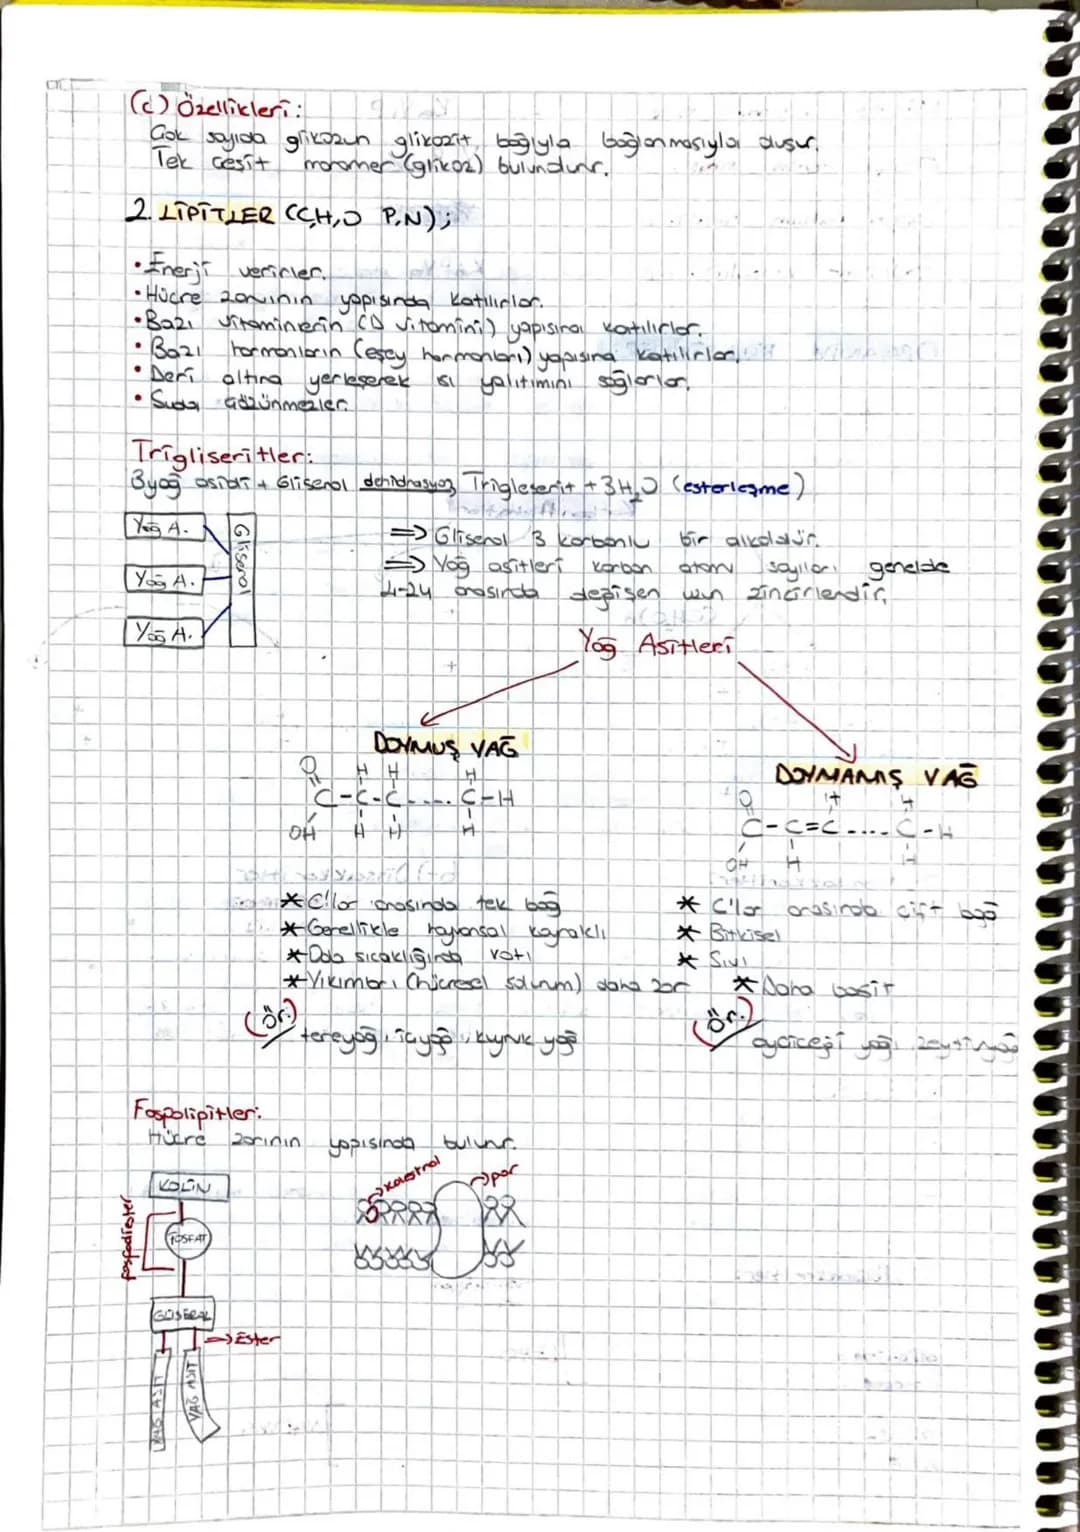 (c) Özellikleri:
Çok sayıda glikozun glikozit bağıyla bağlanmasıyla oluşur.
Tek çeşit monomer (glikoz) bulundurur.
2. LİPİTLER (C,H,O P,N);
• Enerji verirler.
• Hücre zarının yapısında katılırlar.
• Bazı vitaminlerin (D vitamini) yapısına katılırlar.
• Bazı hormonların (eşey hormonları) yapısına katılırlar.
• Deri altına yerleşerek ısı yalıtımını sağlarlar.
• Suda çözünmezler.
Trigliseritler:
3 yağ asidi + Gliserol dehidrasyon Trigleserit + 3H₂O (esterleşme)
Yağ A.
Yağ A.
Yağ A.
Gliserol
⇒ Gliserol 3 karbonlu bir alkoldür.
⇒ Yağ asitleri karbon atomu sayıları genelde
4-24 arasında değişen uzun zincirlerdir.
Yağ Asitleri
DOYMUŞ YAĞ
O H H H
C-C-C.....C-H
OH H H H
* C'lar arasında tek bağ
* Genellikle hayvansal kaynaklı
* Oda sıcaklığında katı
* Yıkımları (hücresel solunum) daha zor
Ör:)
tereyağ, içyağı, kuyruk yağı
DOYMAMIŞ YAĞ
O H H
C-C=C.....C-H
OH H H
* C'lar arasında çift bağ
* Bitkisel
* Sıvı
* Daha basit
Ör:)
ayçiçeği yağı, zeytinyağı
Fospolipitler:
Hücre zarının yapısında bulunur.
KOLİN
FOSFAT
fosfodiester
GLİSERAL
→ Ester
YAĞ ASİT
YAĞ ASİT
por